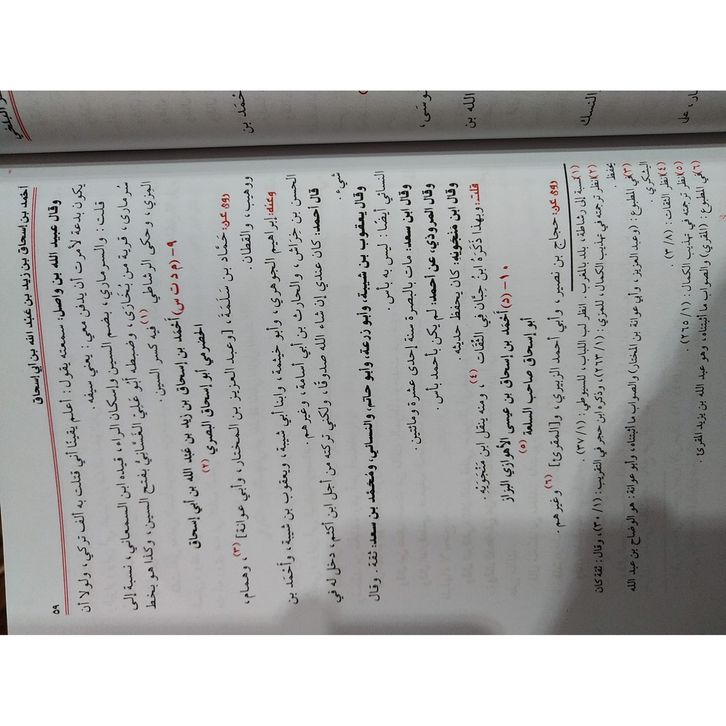 أحمد بن إسحاق بن زيد بن عبد الله بن أبي إسحاق
٥٩
وقال عبيد الله بن واصل: سمعته يقول: أعلم يقينًا أني قتلت به ألف تركي، ولولا أن
يكون بدعة لأمرت أن يدفن معي؛ يعني سيفه.
قلت: والسرماري، بضم السين وإسكان الراء، قيده ابن السمعاني، نسبة إلى
سُرمارى، قرية من بُخَارَى، وضبطه أبو علي الغَسَّانيُّ بفتح السين، وكذا هو بخط
المِزي، وحكى الرشاطي (١) فيه كسر السين.
٩- (م د ت س) أحمد بن إسحاق بن زيد بن عبد الله بن أبي إسحاق
الحضرمي أبو إسحاق البصري (٢)
روى عن: حَمَّاد بن سَلَمَةَ، [وعبد العزيز بن المختار، وأبي عوانة] (٣) وهمام،
ووهيب، والقطان.
وعنه: إبراهيم الجوهري، وأبو خيثمة، وابنا أبي شيبة، ويعقوب بن شيبة، وأحمد بن
الحسن بن خِرَاش، والحارث بن أبي أسامة، وغيرهم.
قال أحمد: كان عندي إن شاء الله صدوقًا، ولكني تركته من أجل ابن أكثم، دخل له في
شيء.
وقال يعقوب بن شيبة، وأبو زرعة، وأبو حاتم، والنسائي، ومُحَمَّد بن سعد: ثقة. وقال
النسائي أيضًا: ليس به بأس.
وقال ابن سعد: مات بالبصرة سنة إحدى عشرة ومائتين.
وقال المروذي، عن أحمد: لم يكن بأحمد بأس.
وقال ابن منجويه: كان يحفظ حديثه.
قلت: وبهذا ذَكَرَهُ ابن حِبَّان في الثِّقَات (٤)، ومنه ينقل ابن مَنْجَوَيْهِ.
١٠- (د) أحْمَد بن إسحاق بن عيسى الأهوازي البزاز
أبو إسحاق صاحب السلعة (٥)
روى عن: حجاج بن نصير، وأبي أحمد الزبيري، و[المقرئ] (٦) وغيرهم.
(١) نسبة إلى رشاطة، بلد بالمغرب. انظر لب اللباب، للسيوطي: (٣٧/١).
(٢) انظر ترجمته في تهذيب الكمال، للمزي: (٢٦٣/١)، وذكره ابن حجر في التقريب: (٣٠/١)، وقال: ثقة كان
يحفظ.
(٣) في المطبوع: (وعبد العزيز، وأبي عوانة بن المختار) والصواب ما أثبتناه، وأبو عوانة: هو الوضاح بن عبد الله
اليشكري.
(٤) انظر الثقات: (٣/٨).
(٥) انظر ترجمته في تهذيب الكمال: (٢٦٥/١).
(٦) في المطبوع: (المقري) والصواب ما أثبتناه، وهو عبد الله بن يزيد المقرئ.
موسى،
الله بن
النسك